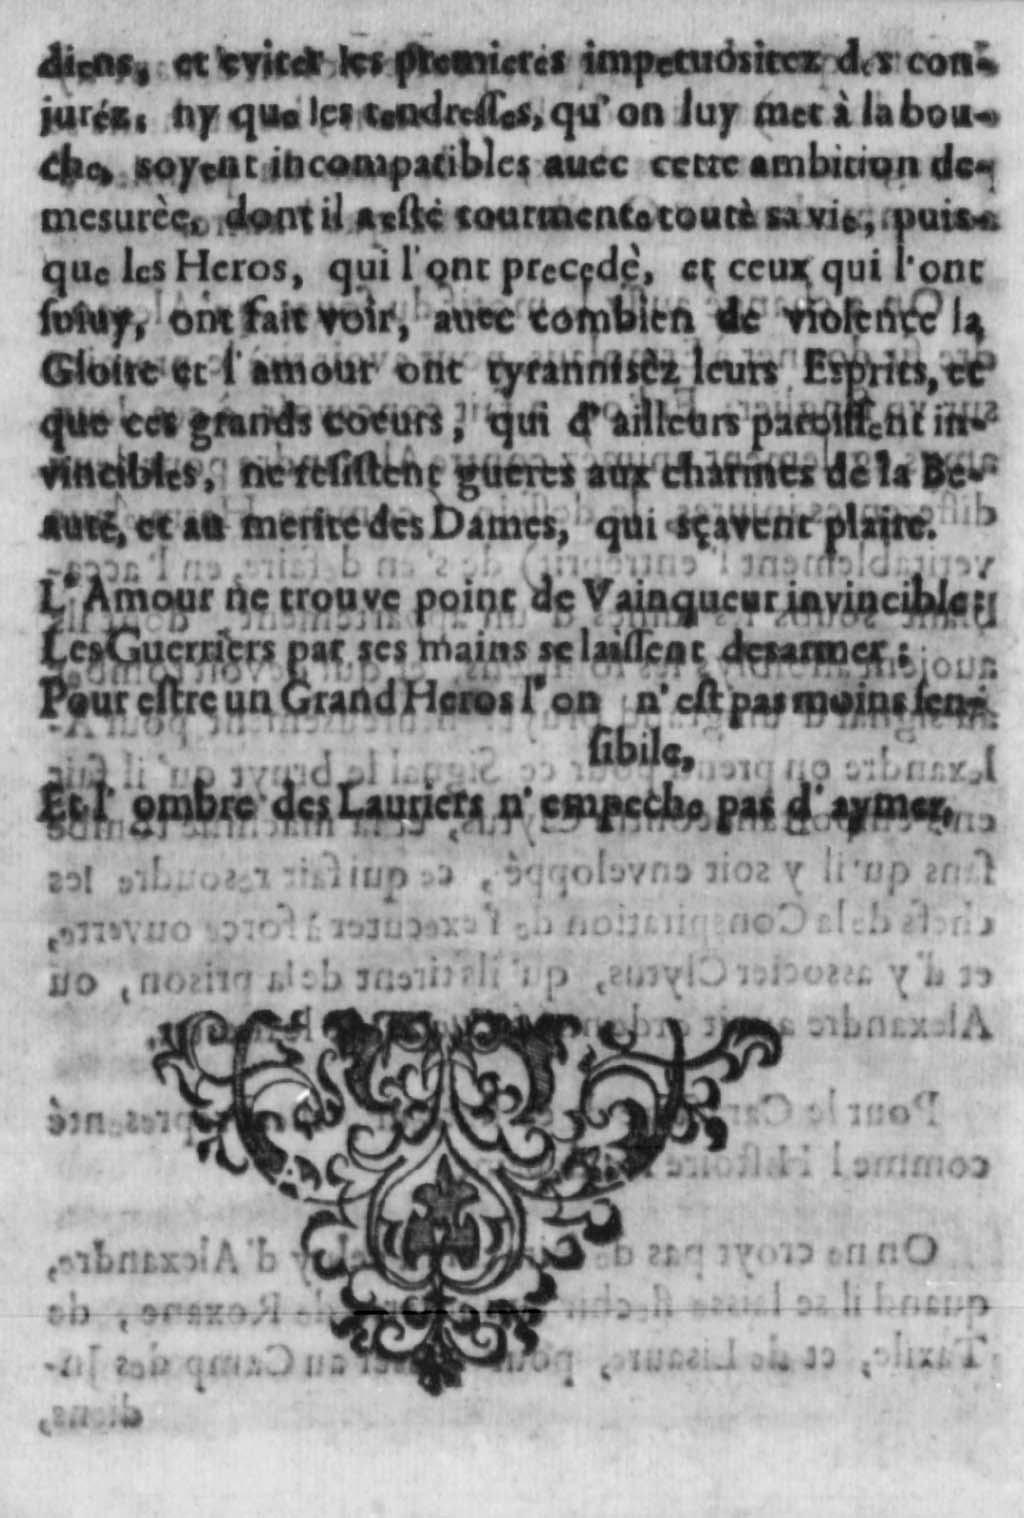 diens, et eviter les premieres impetuositez des con-
juréz, ny que les tendresses, qu'on luy met à la bou-
che, soyent incompatibles auec cette ambition de-
mesurèe, dont il a esté tourmente toutè sa vie, puis-
que les Heros, qui l'ont precedè, et ceux qui l'ont
suiuy, ont fait voir, auec combien de violence la
Gloire et l'amour ont tyrannisèz leurs Esprits, et
que ces grands coeurs, qui d'ailleurs paroissent in-
vincibles, ne resistent gueres aux charmes de la Be-
auté, et au merite des Dames, qui sçavent plaire.
L'Amour ne trouve point de Vainqueur invincible:
Les Guerriers par ses mains se laissent desarmer;
Pour estre un Grand Heros l'on n'est pas moins sen-
sibile,
Et l'ombre des Lauriers n'empeche pas d'aymer,